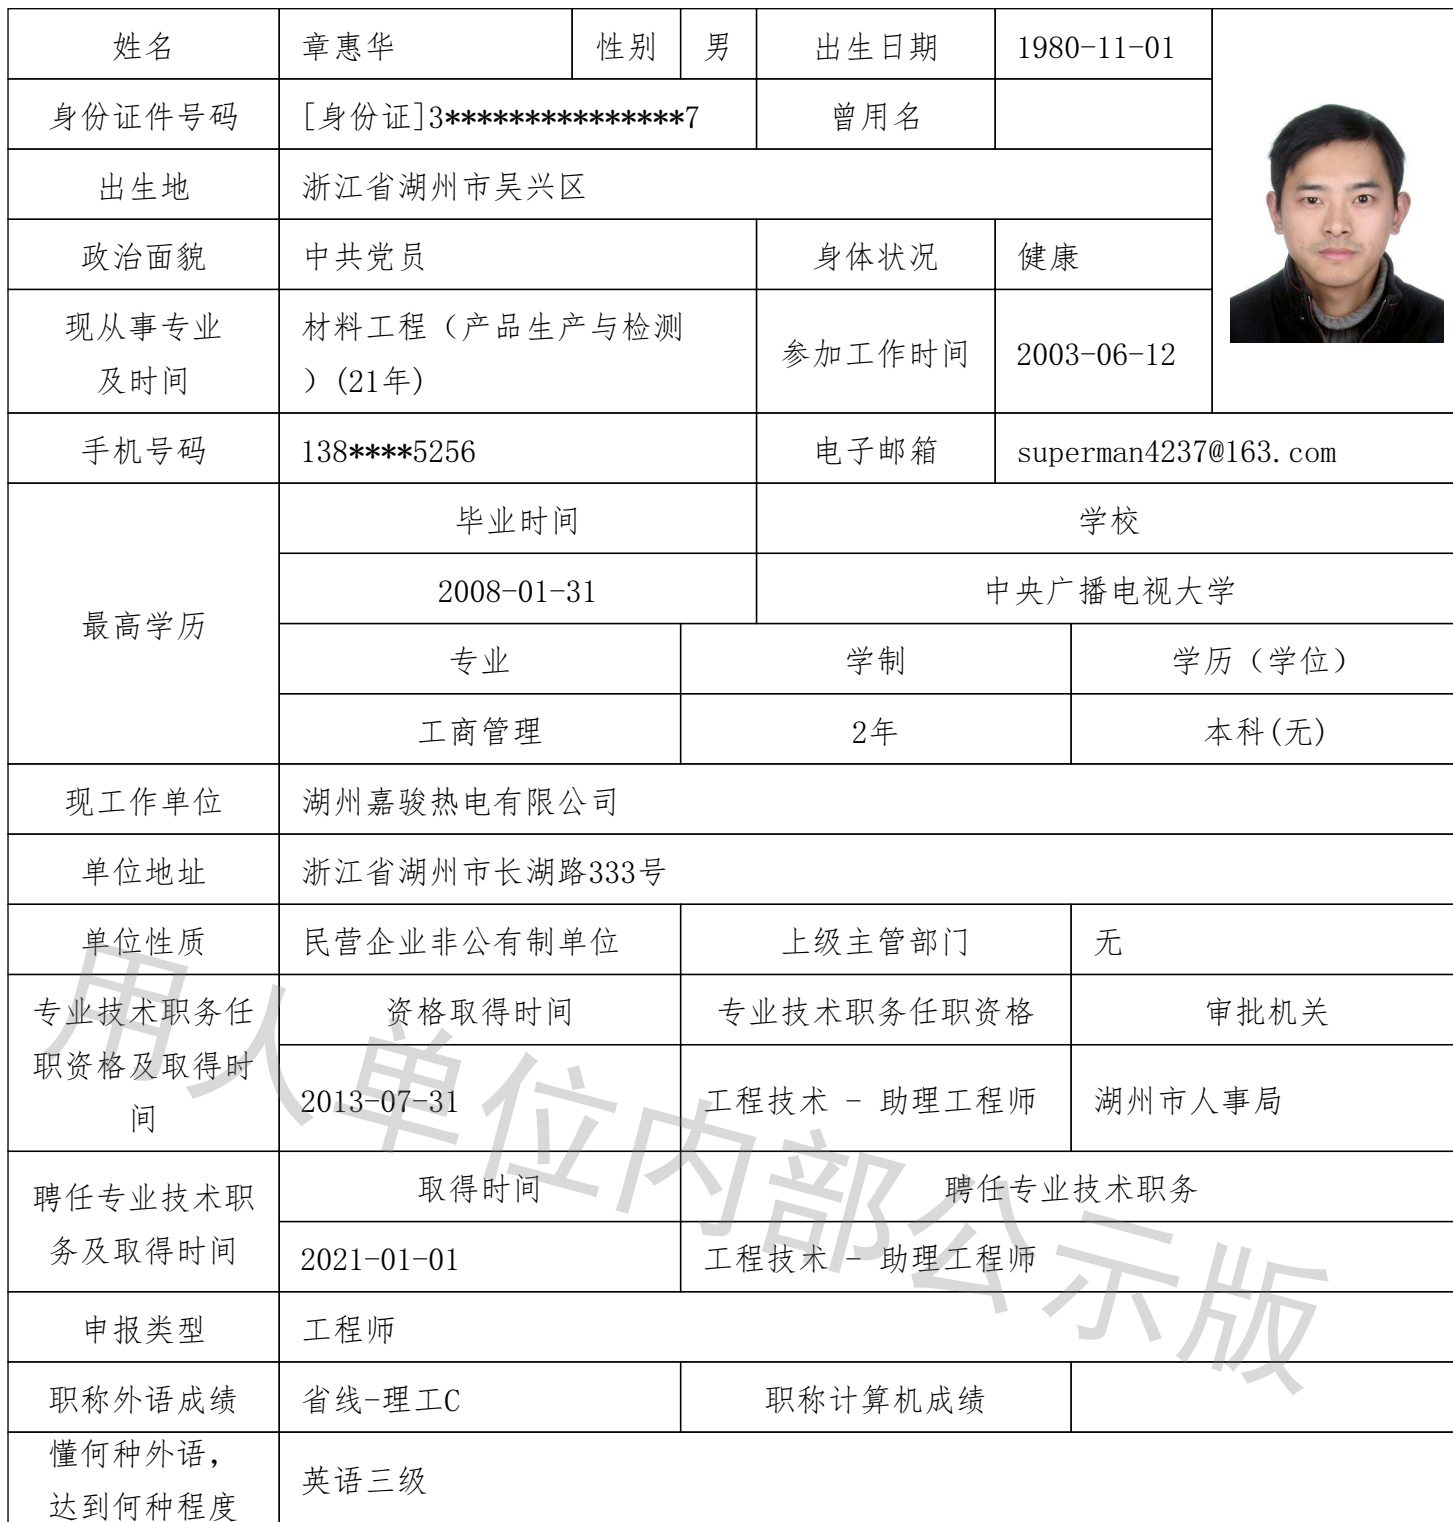 姓名 章惠华 性别 男 出生日期 1980-11-01
身份证件号码 [身份证]3***************7 曾用名
出生地 浙江省湖州市吴兴区
政治面貌 中共党员 身体状况 健康
现从事专业
及时间
材料工程（产品生产与检测
）(21年)
参加工作时间 2003-06-12
手机号码 138****5256 电子邮箱 superman4237@163.com
最高学历
毕业时间 学校
2008-01-31 中央广播电视大学
专业 学制 学历（学位）
工商管理 2年 本科(无)
现工作单位 湖州嘉骏热电有限公司
单位地址 浙江省湖州市长湖路333号
单位性质 民营企业非公有制单位 上级主管部门 无
专业技术职务任
职资格及取得时
间
资格取得时间 专业技术职务任职资格 审批机关
2013-07-31 工程技术 - 助理工程师 湖州市人事局
聘任专业技术职
务及取得时间
取得时间 聘任专业技术职务
2021-01-01 工程技术 - 助理工程师
申报类型 工程师
职称外语成绩 省线-理工C 职称计算机成绩
懂何种外语，
达到何种程度
英语三级
用人单位内部公示版